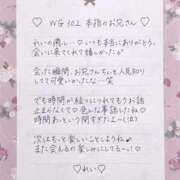 ♡ WG302 本指のお兄さん ♡
れいの癒し…♡いつも本当にありがとう。
会いに来てくれて嬉しかったよ♡
会った瞬間、お兄さんちょっと人見知り
してて可愛いかったな…笑
でも時間が経つにつれてもうお話
止まらなくて♡色んな事話した私♡
時間あっという間すぎた(;_;)
次はもっと楽しいことしようね
また会えるの楽しみにしてるー♡!
♡ れい ♡